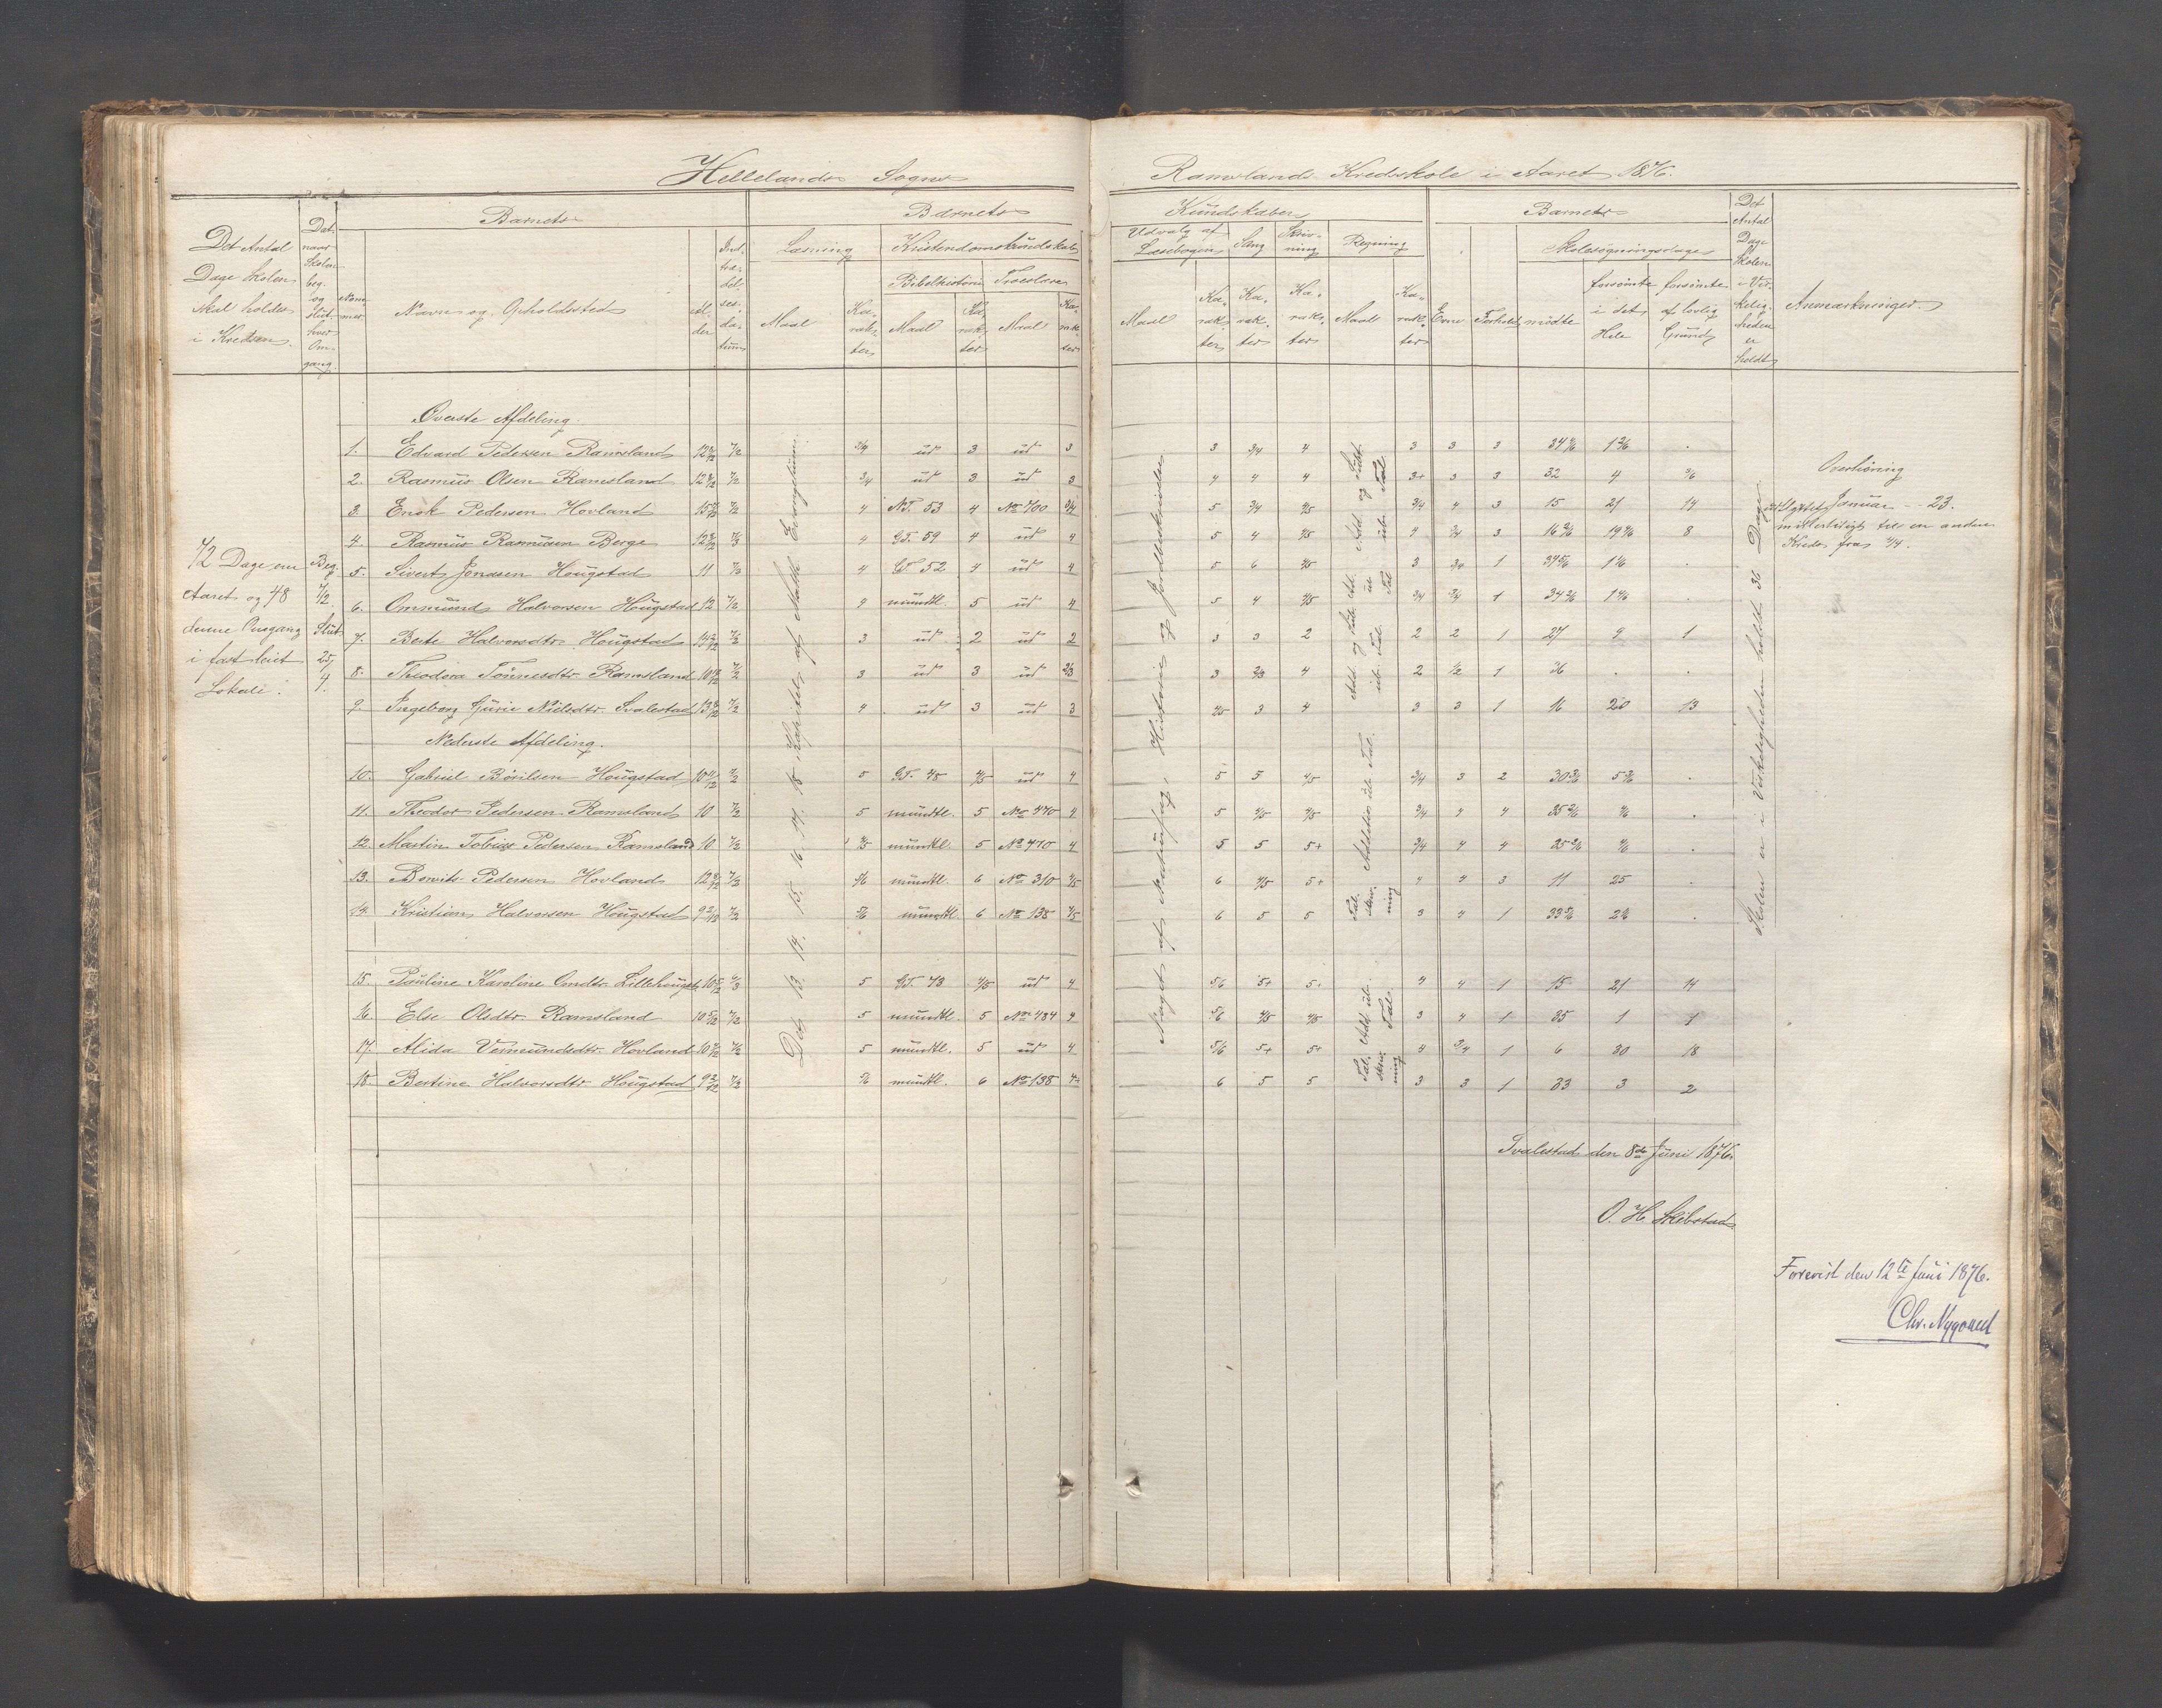 Hellelands Sogns
Ramslands Kredsskole i Aaret 1876.
Det Antal Dage Skolen skal holdes i Kredsen.
Dat. naar Skolen beg. og slut. hver Omgang.
Nummer
Barnets
Navn og Opholdssted
Alder
Indtrædelsesdatum
Barnets
Læsning
Maal
Karakter
Kristendomskundskab
Bibelhistorie
Maal
Karakter
Troeslære
Maal
Karakter
Kundskaber
Udvalg af Læsebogen
Maal
Karakter
Sang
Karakter
Skrivning
Karakter
Regning
Maal
Karakter
Barnets
Evne
Forhold
Skolesøgningsdage
mødte
forsømte i det Hele
forsømte af lovlig Grund
Det Antal Dage Skolen i Virkeligheden er holdt
Anmærkninger.
72 Dage om Aaret og 48 denne Omgang i fast leiet Lokale.
Beg. 7/2 Slut. 25/4.
Øverste Afdeling.
1. Edvard Pedersen Ramsland 7/2 3/4 ud 3 ud 3 3 3/4 4 3 3 3
2. Rasmus Olsen Ramsland 7/2 3/4 ud 3 ud 3 4 4 4 3+ 3 3 32 4
3. Enok Pedersen Hovland 7/2 4 NT. 53 4 No 700 3/4 5 3/4 4/5 3/4 4 3 15 21 14
4. Rasmus Rasmusen Berge 4 GT. 59 4 ud 4 5 4 4/5 4 3/4 3 8
5. Sivert Jonasen Hougstad 11 7/2 4 GT 52 4 ud 4 5 6 4/5 3 3/4 1
6. Ommund Halvorsen Hougstad 12 7/2 4 mundtl. 5 ud 4 5 4 4/5 3/4 3/4 1
7. Berte Halvorsdtr. Hougstad 7/2 3 ud 2 ud 2 3 3 2 2 2 1 27 9 1
8. Theodora Tönnesdtr. Ramsland 7/2 3 ud 3 ud 2/3 3 2/3 4 2 1/2 1 36 . .
9. Ingeborg Gurie Nielsdtr. Svalestad 7/2 4 ud 3 ud 3 4/5 3 4 3 3 1 16 20 13
Nederste Afdeling.
10. Gabriel Börilsen Hougstad 10 11/12 7/2 5 GT. 48 4/5 ud 4 5 5 4/5 3/4 3 2
11. Theodor Pedersen Ramsland 10 7/2 5 mundtl. 5 No 470 4 5 4/5 4/5 3/4 4 4
12. Martin Tobias Pedersen Ramsland 10 7/2 mundtl. 5 No 470 4 5 5 5+ 3/4 4 4
13. Bervits Pedersen Hovland 7/2 5/6 mundtl. 6 No 310 4/5 6 4/5 5+ 4 4 3 11 25
14. Kristian Halvorsen Hougstad 7/2 5/6 mundtl. 6 No 138 4/5 6 5 5 3 4 1
15. Pauline Karoline Omdtr. Lillehougst. 5 GT. 43 4/5 ud 4 5/6 5+ 5+ 4 4 1 15 21 14
16. Else Olsdtr. Ramsland 10 5/12 7/2 5 mundtl. 5 No 484 4 5/6 4/5 4/5 3 4 1 35 1 1
17. Alida Vermundsdtr. Hovland 7/2 5 mundtl. 5 ud 4 5/6 5+ 5+ 4 3/4 1 6 30 18
18. Bertine Halvorsdtr. Hougstad 9 2/12 7/2 5/6 mundtl. 6 No 138 6 5 5 3 3 1 33 3 2
Det 13. 14. 15. 16. 17. 18 Kapitel af Matth. Evangelium.
Noget af Naturfag, Historie og Jordbeskrivelse
Add. og Subt. ub. Tal.
Add. ub. Tal.
Add. og Sub. ub. Tal.
Addition ub. Tal.
Tal. skrivning
Add. ub. Tal.
Tal. skrivning
Skolen er i Virkeligheden holdt 36 Dage.
Overhöring
Januar - 23.
midlertidigt til en anden Kreds fra
Svalestad den 8de Juni 1876.
O. H. Skibstad
Forevist den 12te Juni 1876.
Chr. Nygaard